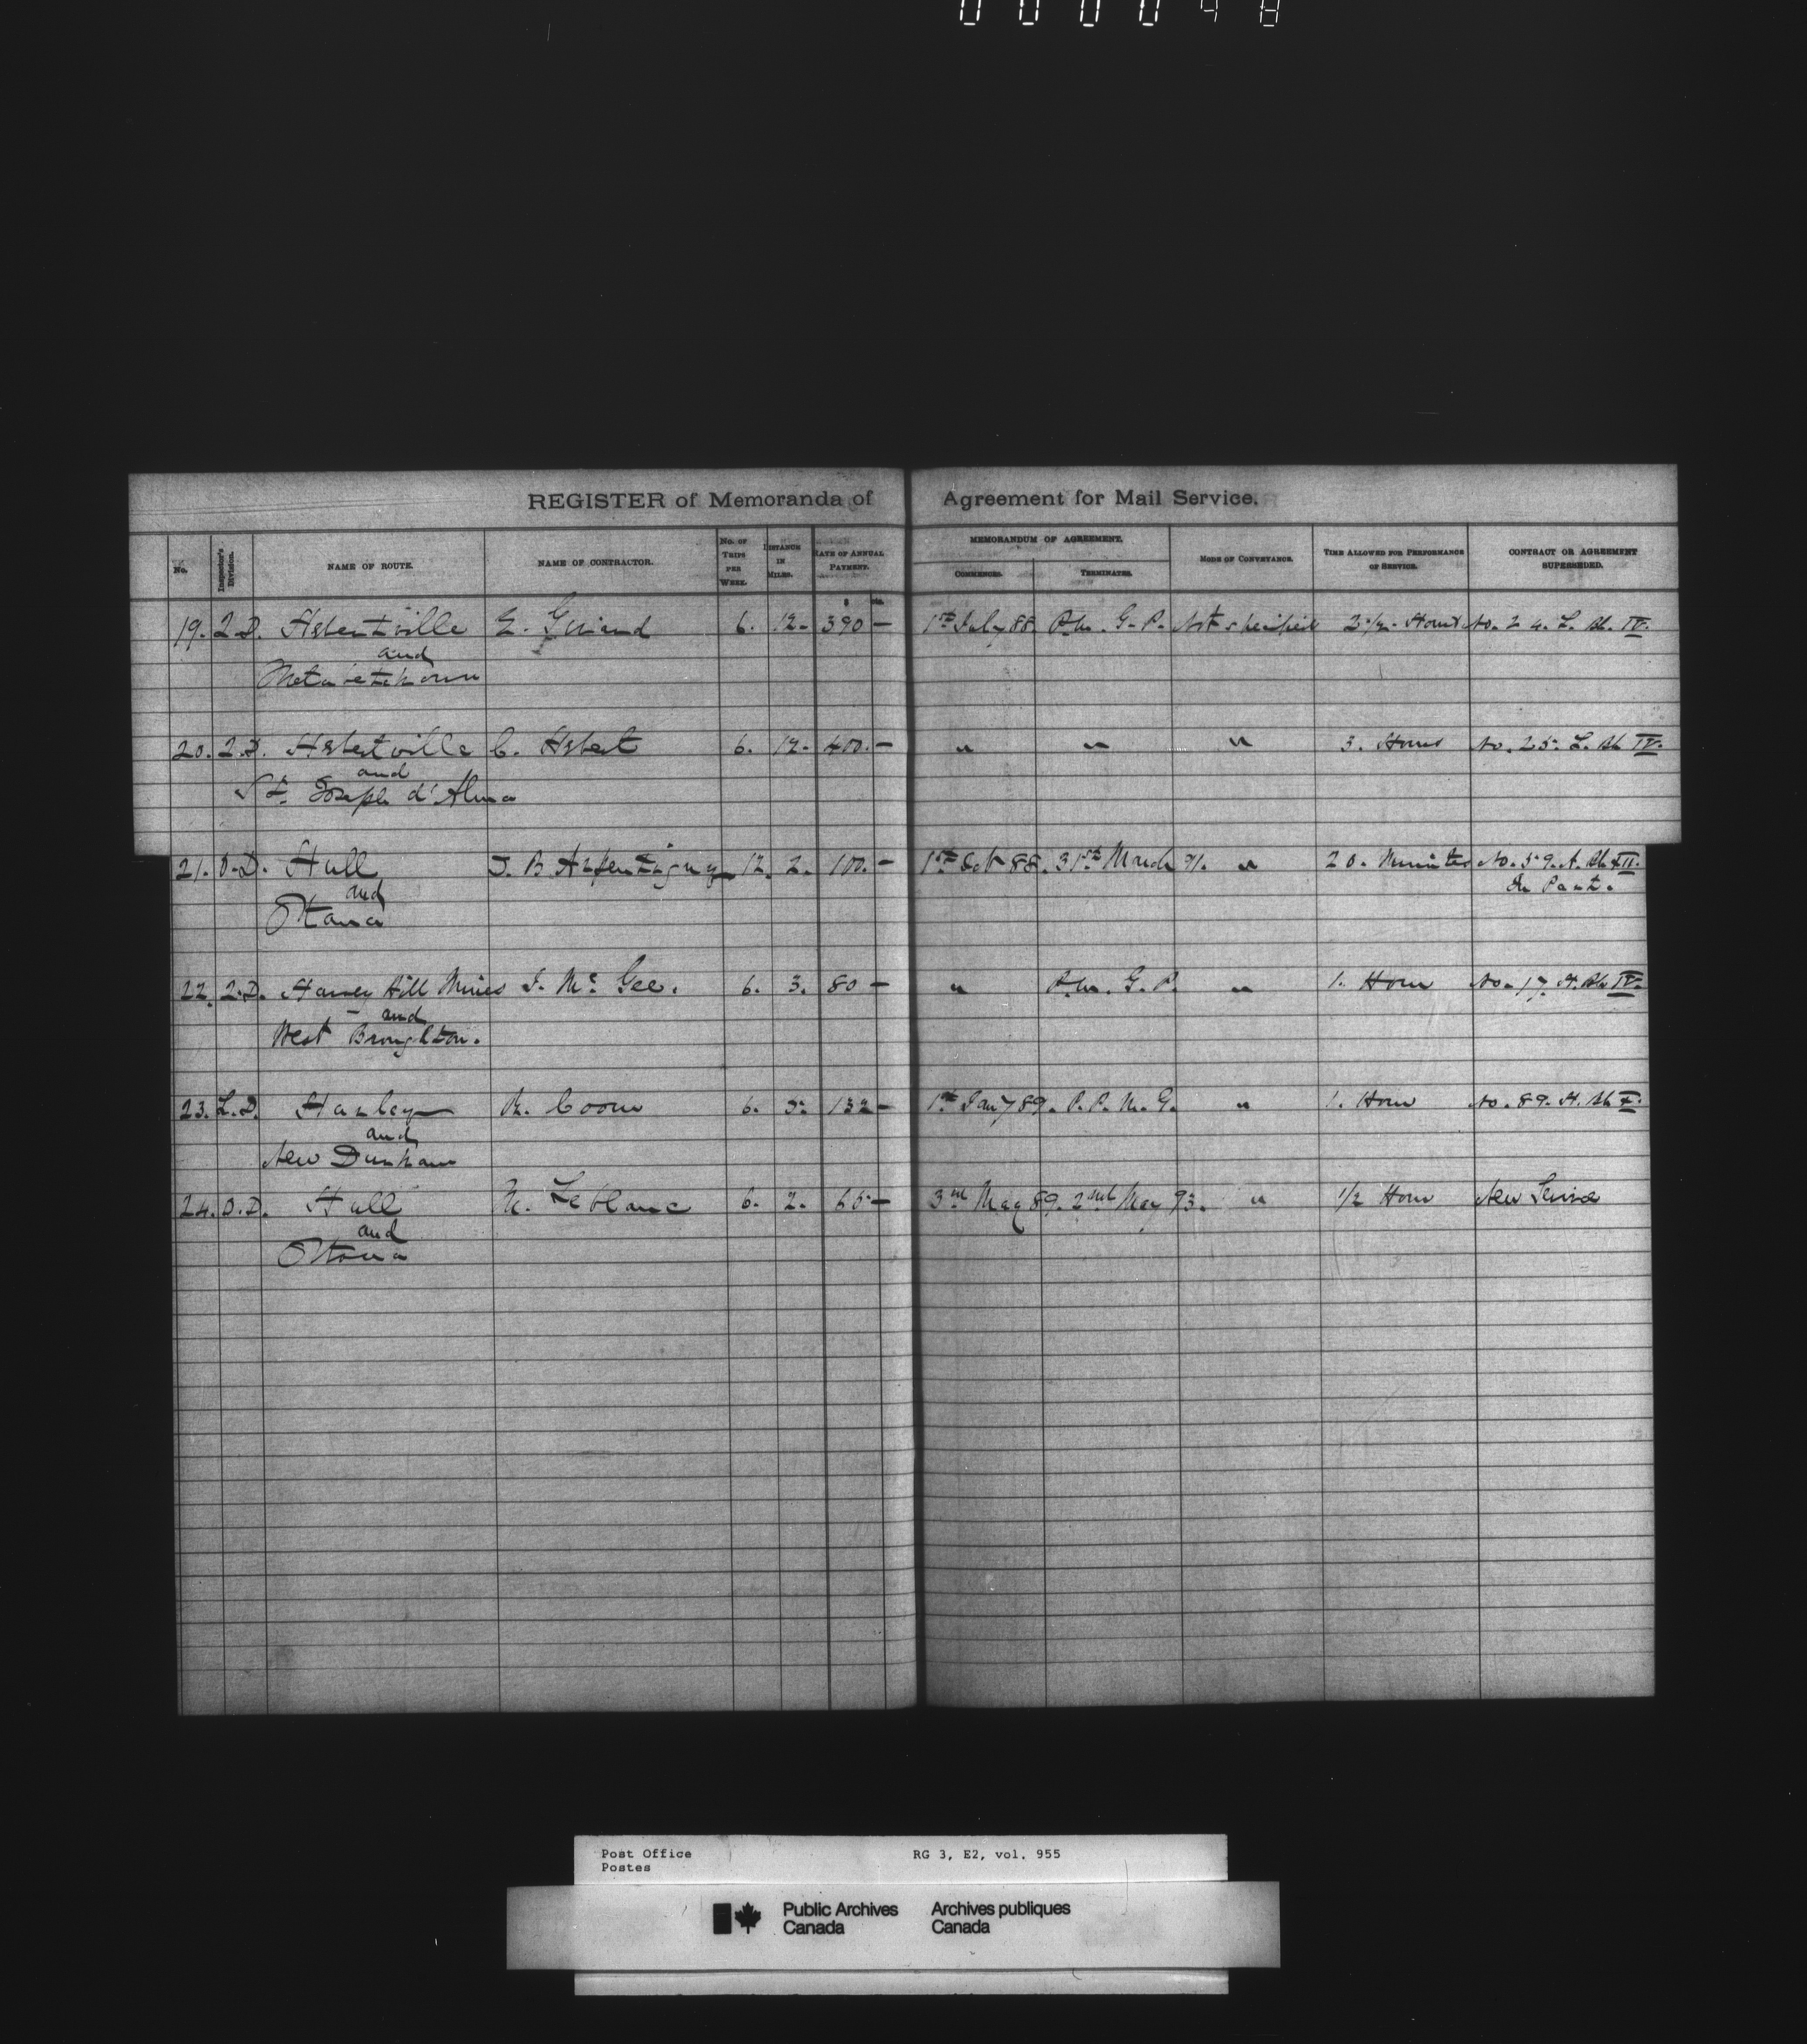 000098
REGISTER of Memoranda of Agreement for Mail Service.
No. Inspector's Division. NAME OF ROUTE. NAME OF CONTRACTOR. No. of Trips per Week. Distance in Miles. Rate of Annual Payment. MEMORANDUM OF AGREEMENT. Commences. Terminates. Mode of Conveyance. Time Allowed for Performance of Service. CONTRACT OR AGREEMENT SUPERSEDED.
19. Q.D. Hebertville E. 6. 12. 390 — 1st July 88 P.M.G.P. Not specified 2 1/2 Hours No. 24. L. Sh. IV.
and
Metabetchouan
20. Q.D. Hebertville C. Hebert 6. 12. 400. — " " " 3. Hours No. 25. L. Sh IV.
and
St. Joseph d'Alma
21. O.D. Hull J. B Arpentigny 12. 2. 100. — 1st Oct 88. 31st March 91. " 20. Minutes No. 59. A. Sh XII.
and In Part.
Ottawa
22. Q.D. Harvey Hill Mines J. Mc Gee. 6. 3. 80 — " P.M.G.P. " 1. Hour No. 17. H. Sh IV.
and
West Broughton.
23. L.D. Harley R. Coom 6. 132 — 1st Jany 89. P.P.M.G. " 1. Hour No. 89. H. Sh X.
and
New Durham
24. O.D. Hull N. Leblanc 6. 2. 65 — 3rd May 89. 2nd May 93. " 1/2 Hour New Service
and
Ottawa
Post Office RG 3, E2, vol. 955
Postes
Public Archives Archives publiques
Canada Canada